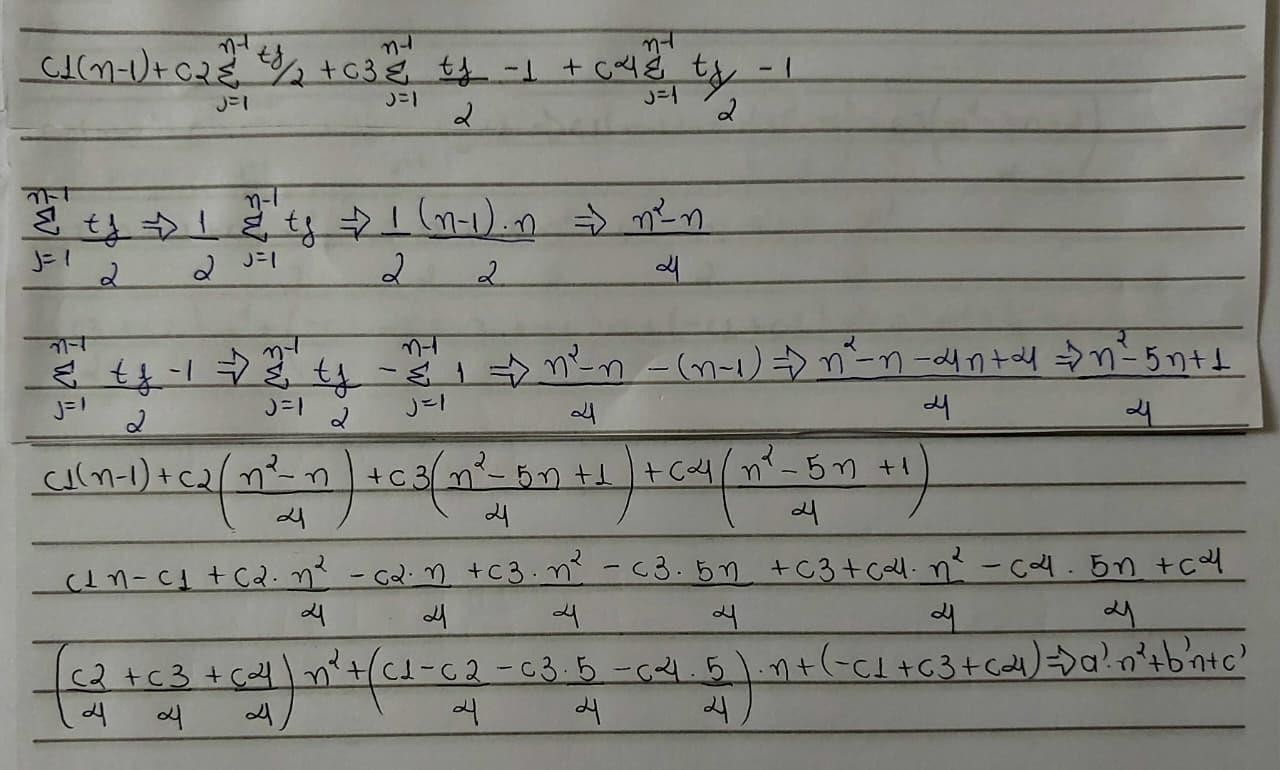 c1(n-1) + c2 Σ_{j=1}^{n-1} tj/2 + c3 Σ_{j=1}^{n-1} tj/2 - 1 + c4 Σ_{j=1}^{n-1} tj/2 - 1
Σ_{j=1}^{n-1} tj/2 ⇒ 1/2 Σ_{j=1}^{n-1} tj ⇒ 1/2 (n-1).n/2 ⇒ n²-n/4
Σ_{j=1}^{n-1} tj/2 - 1 ⇒ Σ_{j=1}^{n-1} tj/2 - Σ_{j=1}^{n-1} 1 ⇒ n²-n/4 - (n-1) ⇒ n²-n-4n+4/4 ⇒ n²-5n/4 + 1
c1(n-1) + c2(n²-n/4) + c3(n²-5n/4 + 1) + c4(n²-5n/4 + 1)
c1n - c1 + c2.n²/4 - c2.n/4 + c3.n²/4 - c3.5n/4 + c3 + c4.n²/4 - c4.5n/4 + c4
(c2/4 + c3/4 + c4/4) n² + (c1 - c2/4 - c3.5/4 - c4.5/4).n + (-c1 + c3 + c4) ⇒ a'.n² + b'n + c'